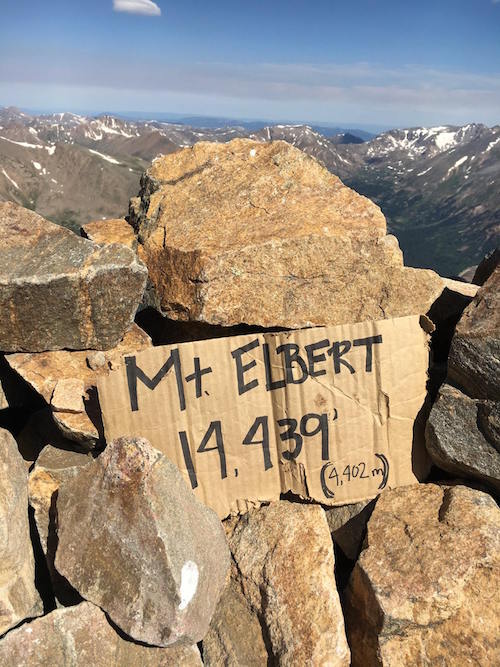 Mt. ELBERT
14,439'
(4,402m)